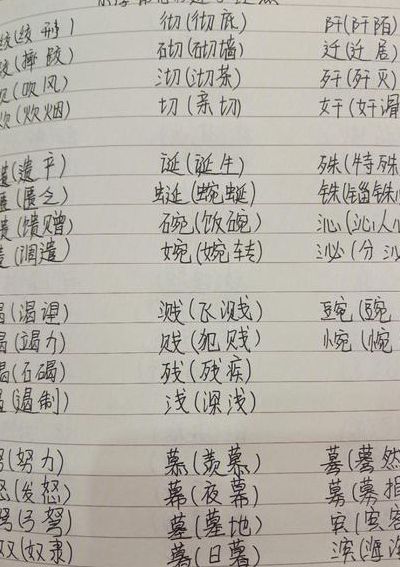 绞(绞刑) 彻(彻底) 阡(阡陌)
(摔跤) 砌(砌墙) 迁(迁居)
吹(吹风) 沏(沏茶) 歼(歼灭)
炊(炊烟) 切(亲切) 奸(奸滑
遗(遗产) 诞(诞生) 殊(特殊
匮(匮乏) 蜒(蜿蜒) 铢(锱铢
馈(馈赠) 碗(饭碗) 沁(沁人心
(调遣) 婉(婉转) 泌(分泌
(渴望) 溅(飞溅) 豌(豌
竭(竭力) 贱(犯贱) 惋(惋
(石碣) 残(残疾)
遏(遏制) 浅(深浅)
努(努力) 慕(羡慕) 蓦(蓦然
怒(发怒) 幕(夜幕) 募(募捐
弩(弓弩) 墓(墓地) 宾(宾客
奴(奴隶) 暮(日暮) 滨(海滨